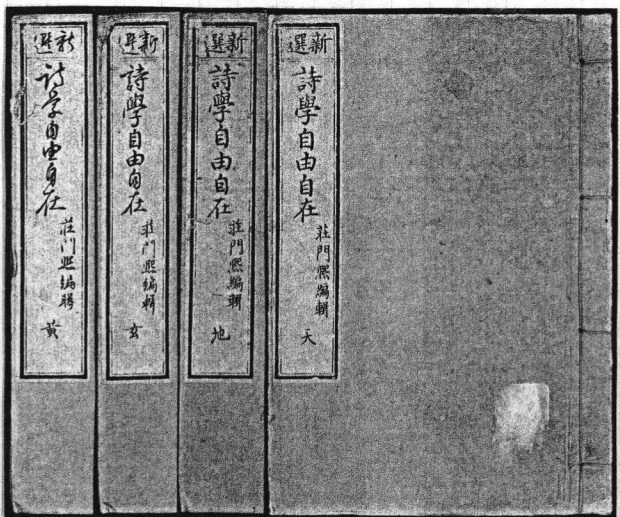 新選
詩學自由自在
莊門熙編輯
天
新選
詩學自由自在
莊門熙編輯
地
新選
詩學自由自在
莊門熙編輯
玄
新選
詩学自由自在
莊門熙編
黄